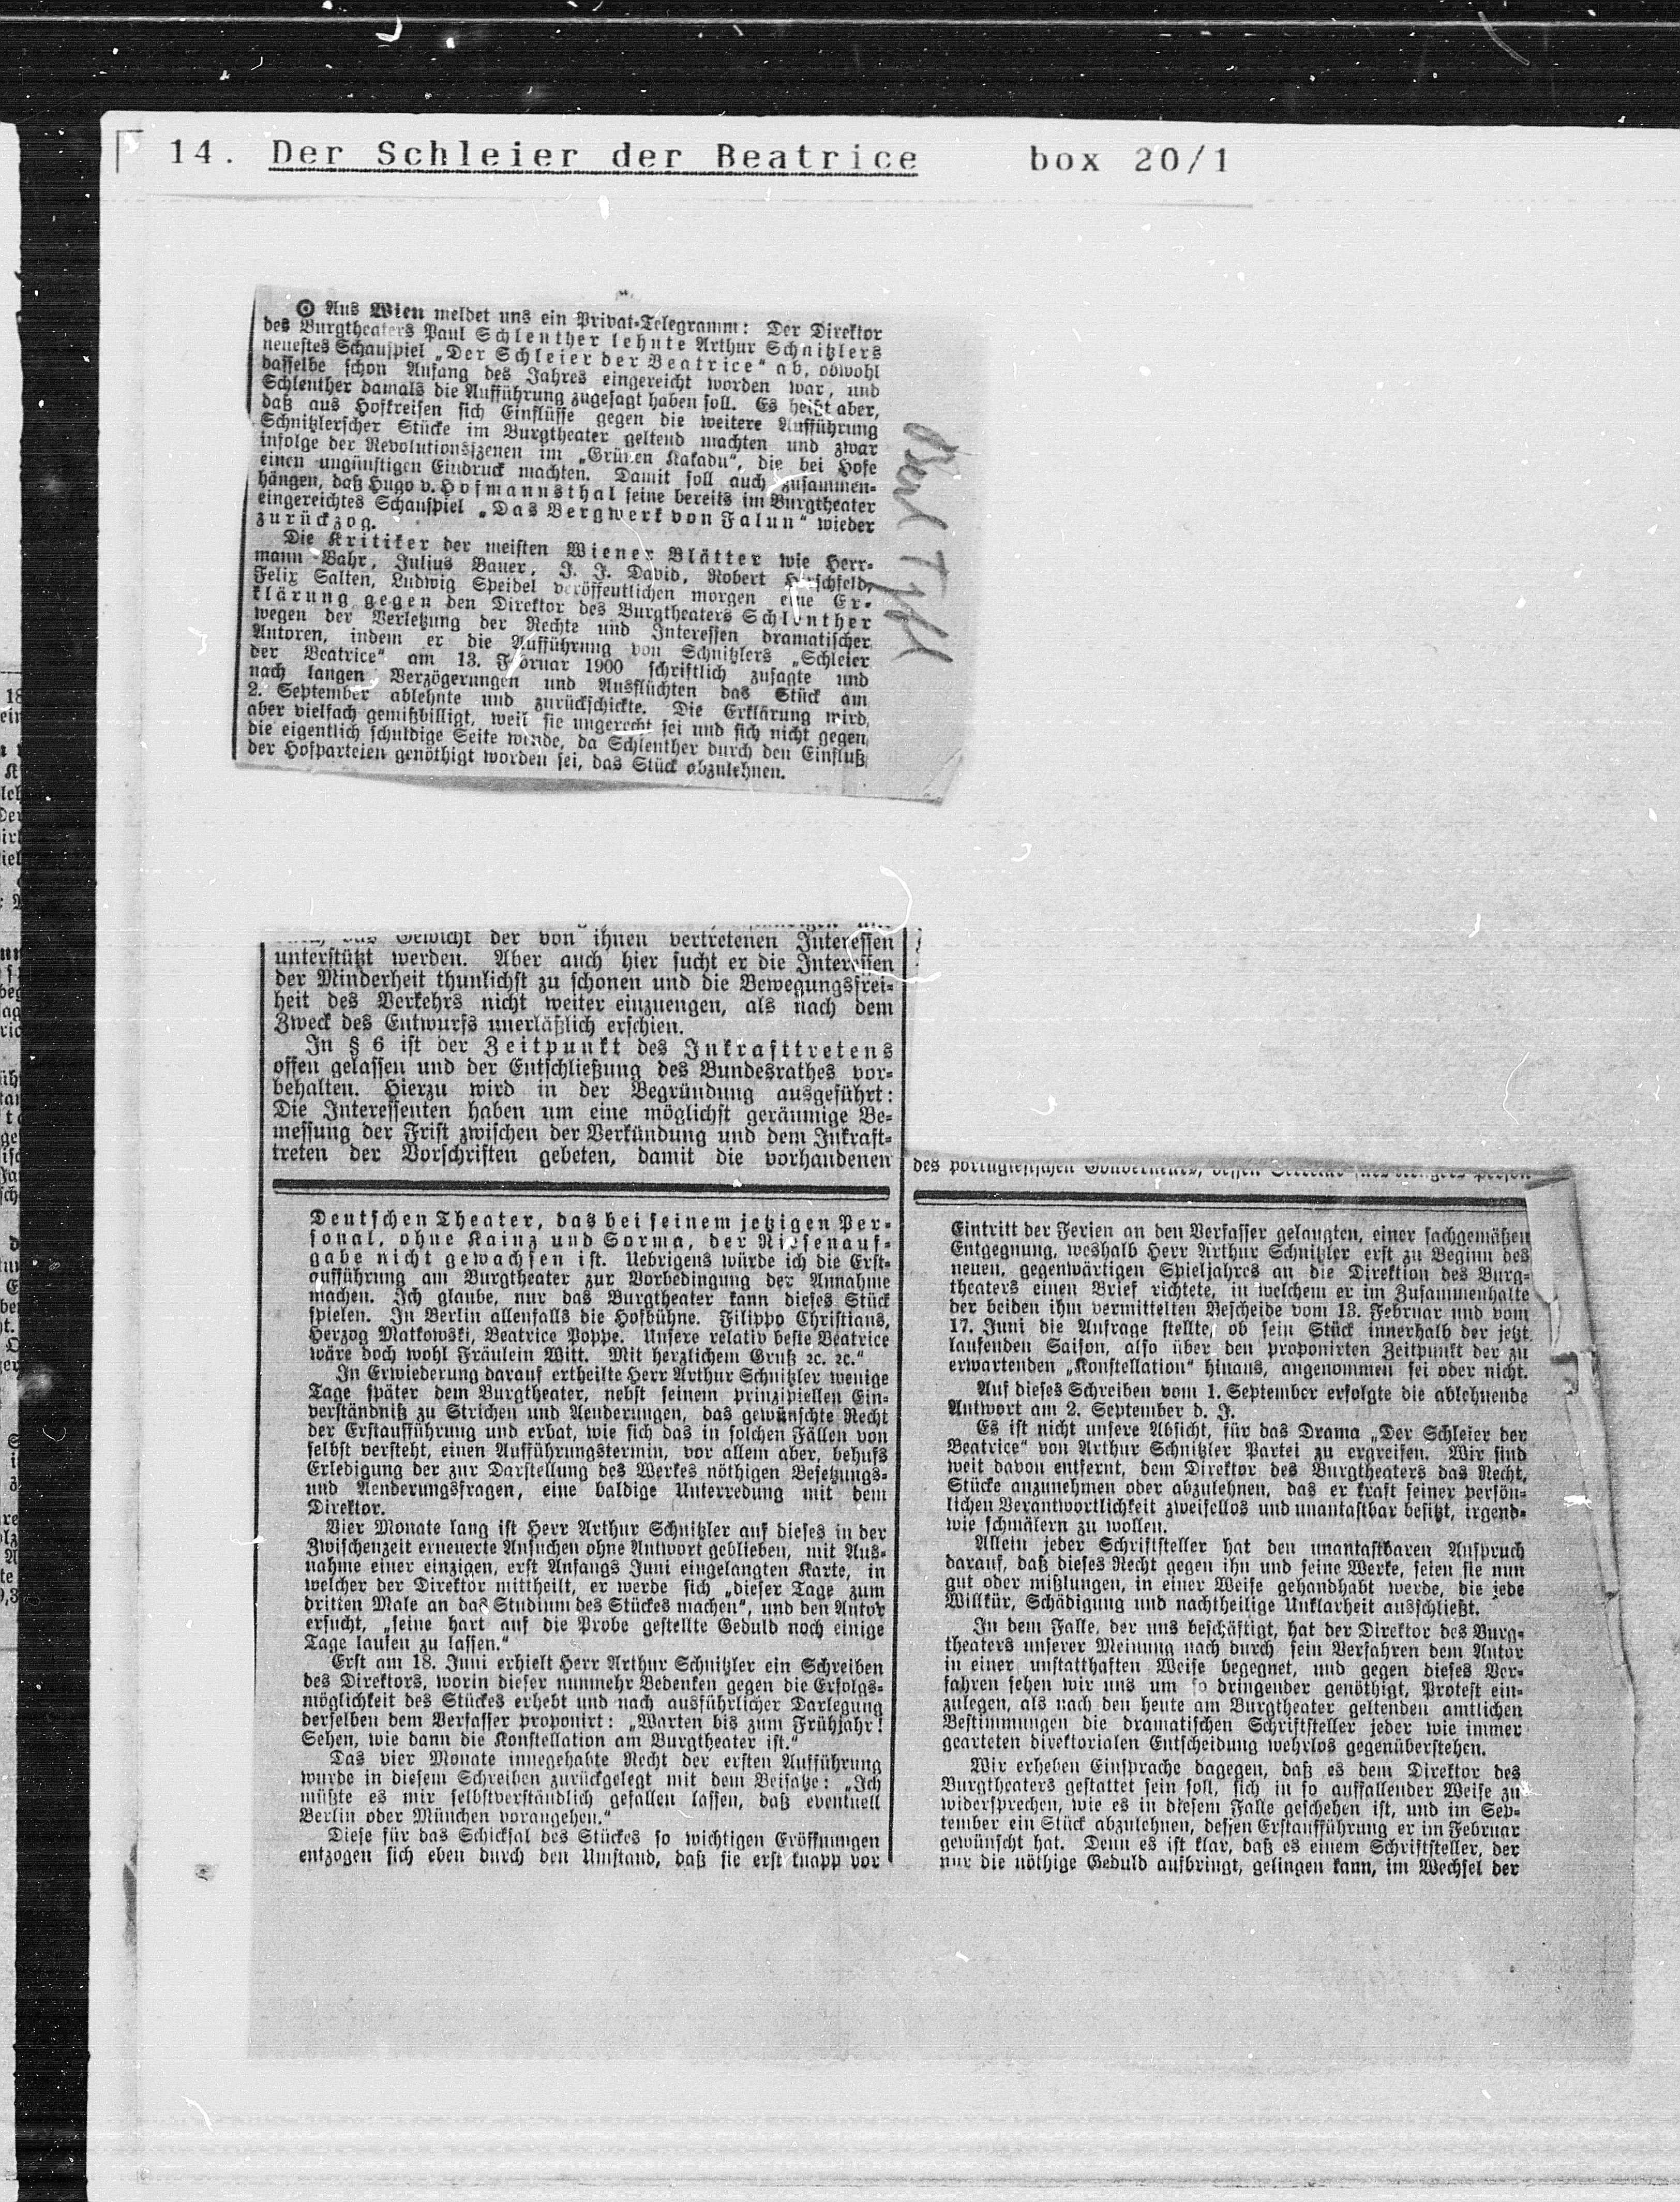 14. Der Schleier der Beatrice box 20/1
⊙ Aus Wien meldet uns ein Privat-Telegramm: Der Direktor
des Burgtheaters Paul Schlenther lehnte Arthur Schnitzlers
neuestes Schauspiel „Der Schleier der Beatrice“ ab, obwohl
dasselbe schon Anfang des Jahres eingereicht worden war, und
Schlenther damals die Aufführung zugesagt haben soll. Es heißt aber,
daß aus Hofkreisen sich Einflüsse gegen die weitere Aufführung
Schnitzlerscher Stücke im Burgtheater geltend machten und zwar
infolge der Revolutionsszenen im „Grünen Kakadu“, die bei Hofe
einen ungünstigen Eindruck machten. Damit soll auch zusammen-
hängen, daß Hugo v. Hofmannsthal seine bereits im Burgtheater
eingereichtes Schauspiel „Das Bergwerk von Falun“ wieder
zurückzog.
Die Kritiker der meisten Wiener Blätter wie Herr-
mann Bahr, Julius Bauer, J. J. David, Robert Hirschfeld,
Felix Salten, Ludwig Speidel veröffentlichen morgen eine Er-
klärung gegen den Direktor des Burgtheaters Schlenther
wegen der Verletzung der Rechte und Interessen dramatischer
Autoren, indem er die Aufführung von Schnitzlers „Schleier
der Beatrice“ am 13. Februar 1900 schriftlich zusagte und
nach langen Verzögerungen und Ausflüchten das Stück am
2. September ablehnte und zurückschickte. Die Erklärung wird
aber vielfach gemißbilligt, weil sie ungerecht sei und sich nicht gegen
die eigentlich schuldige Seite wende, da Schlenther durch den Einfluß
der Hofparteien genöthigt worden sei, das Stück abzulehnen.
Gewicht der von ihnen vertretenen Interessen
unterstützt werden. Aber auch hier sucht er die Interessen
der Minderheit thunlichst zu schonen und die Bewegungsfrei-
heit des Verkehrs nicht weiter einzuengen, als nach dem
Zweck des Entwurfs unerläßlich erschien.
In § 6 ist der Zeitpunkt des Inkrafttretens
offen gelassen und der Entschließung des Bundesrathes vor-
behalten. Hierzu wird in der Begründung ausgeführt:
Die Interessenten haben um eine möglichst geräumige Be-
messung der Frist zwischen der Verkündung und dem Inkraft-
treten der Vorschriften gebeten, damit die vorhandenen
Deutschen Theater, das bei seinem jetzigen Per-
sonal, ohne Kainz und Sorma, der Riesenauf-
gabe nicht gewachsen ist. Uebrigens würde ich die Erst-
aufführung am Burgtheater zur Vorbedingung der Annahme
machen. Ich glaube, nur das Burgtheater kann dieses Stück
spielen. In Berlin allenfalls die Hofbühne. Filippo Christians,
Herzog Matkowski, Beatrice Poppe. Unsere relativ beste Beatrice
wäre doch wohl Fräulein Witt. Mit herzlichem Gruß ꝛc. ꝛc.“
In Erwiederung darauf ertheilte Herr Arthur Schnitzler wenige
Tage später dem Burgtheater, nebst seinem prinzipiellen Ein-
verständniß zu Strichen und Aenderungen, das gewünschte Recht
der Erstaufführung und erbat, wie sich das in solchen Fällen von
selbst versteht, einen Aufführungstermin, vor allem aber, behufs
Erledigung der zur Darstellung des Werkes nöthigen Besetzungs-
und Aenderungsfragen, eine baldige Unterredung mit dem
Direktor.
Vier Monate lang ist Herr Arthur Schnitzler auf dieses in der
Zwischenzeit erneuerte Ansuchen ohne Antwort geblieben, mit Aus-
nahme einer einzigen, erst Anfangs Juni eingelangten Karte, in
welcher der Direktor mittheilt, er werde sich „dieser Tage zum
dritten Male an das Studium des Stückes machen“, und den Autor
ersucht, „seine hart auf die Probe gestellte Geduld noch einige
Tage laufen zu lassen.“
Erst am 18. Juni erhielt Herr Arthur Schnitzler ein Schreiben
des Direktors, worin dieser nunmehr Bedenken gegen die Erfolgs-
möglichkeit des Stückes erhebt und nach ausführlicher Darlegung
derselben dem Verfasser proponirt: „Warten bis zum Frühjahr!
Sehen, wie dann die Konstellation am Burgtheater ist.“
Das vier Monate innegehabte Recht der ersten Aufführung
wurde in diesem Schreiben zurückgelegt mit dem Beisatze: „Ich
müßte es mir selbstverständlich gefallen lassen, daß eventuell
Berlin oder München vorangehen.“
Diese für das Schicksal des Stückes so wichtigen Eröffnungen
entzogen sich eben durch den Umstand, daß sie erst knapp vor
des portugiesischen Gouverneurs, dessen
Eintritt der Ferien an den Verfasser gelangten, einer sachgemäßen
Entgegnung, weshalb Herr Arthur Schnitzler erst zu Beginn des
neuen, gegenwärtigen Spieljahres an die Direktion des Burg-
theaters einen Brief richtete, in welchem er im Zusammenhalte
der beiden ihm vermittelten Bescheide vom 13. Februar und vom
17. Juni die Anfrage stellte, ob sein Stück innerhalb der jetzt
laufenden Saison, also über den proponirten Zeitpunkt der zu
erwartenden „Konstellation“ hinaus, angenommen sei oder nicht.
Auf dieses Schreiben vom 1. September erfolgte die ablehnende
Antwort am 2. September d. J.
Es ist nicht unsere Absicht, für das Drama „Der Schleier der
Beatrice“ von Arthur Schnitzler Partei zu ergreifen. Wir sind
weit davon entfernt, dem Direktor des Burgtheaters das Recht,
Stücke anzunehmen oder abzulehnen, das er kraft seiner persön-
lichen Verantwortlichkeit zweifellos und unantastbar besitzt, irgend-
wie schmälern zu wollen.
Allein jeder Schriftsteller hat den unantastbaren Anspruch
darauf, daß dieses Recht gegen ihn und seine Werke, seien sie nun
gut oder mißlungen, in einer Weise gehandhabt werde, die jede
Willkür, Schädigung und nachtheilige Unklarheit ausschließt.
In dem Falle, der uns beschäftigt, hat der Direktor des Burg-
theaters unserer Meinung nach durch sein Verfahren dem Autor
in einer unstatthaften Weise begegnet, und gegen dieses Ver-
fahren sehen wir uns um so dringender genöthigt, Protest ein-
zulegen, als nach den heute am Burgtheater geltenden amtlichen
Bestimmungen die dramatischen Schriftsteller jeder wie immer
gearteten direktorialen Entscheidung wehrlos gegenüberstehen.
Wir erheben Einsprache dagegen, daß es dem Direktor des
Burgtheaters gestattet sein soll, sich in so auffallender Weise zu
widersprechen, wie es in diesem Falle geschehen ist, und im Sep-
tember ein Stück abzulehnen, dessen Erstaufführung er im Februar
gewünscht hat. Denn es ist klar, daß es einem Schriftsteller, der
nur die nöthige Geduld aufbringt, gelingen kann, im Wechsel der